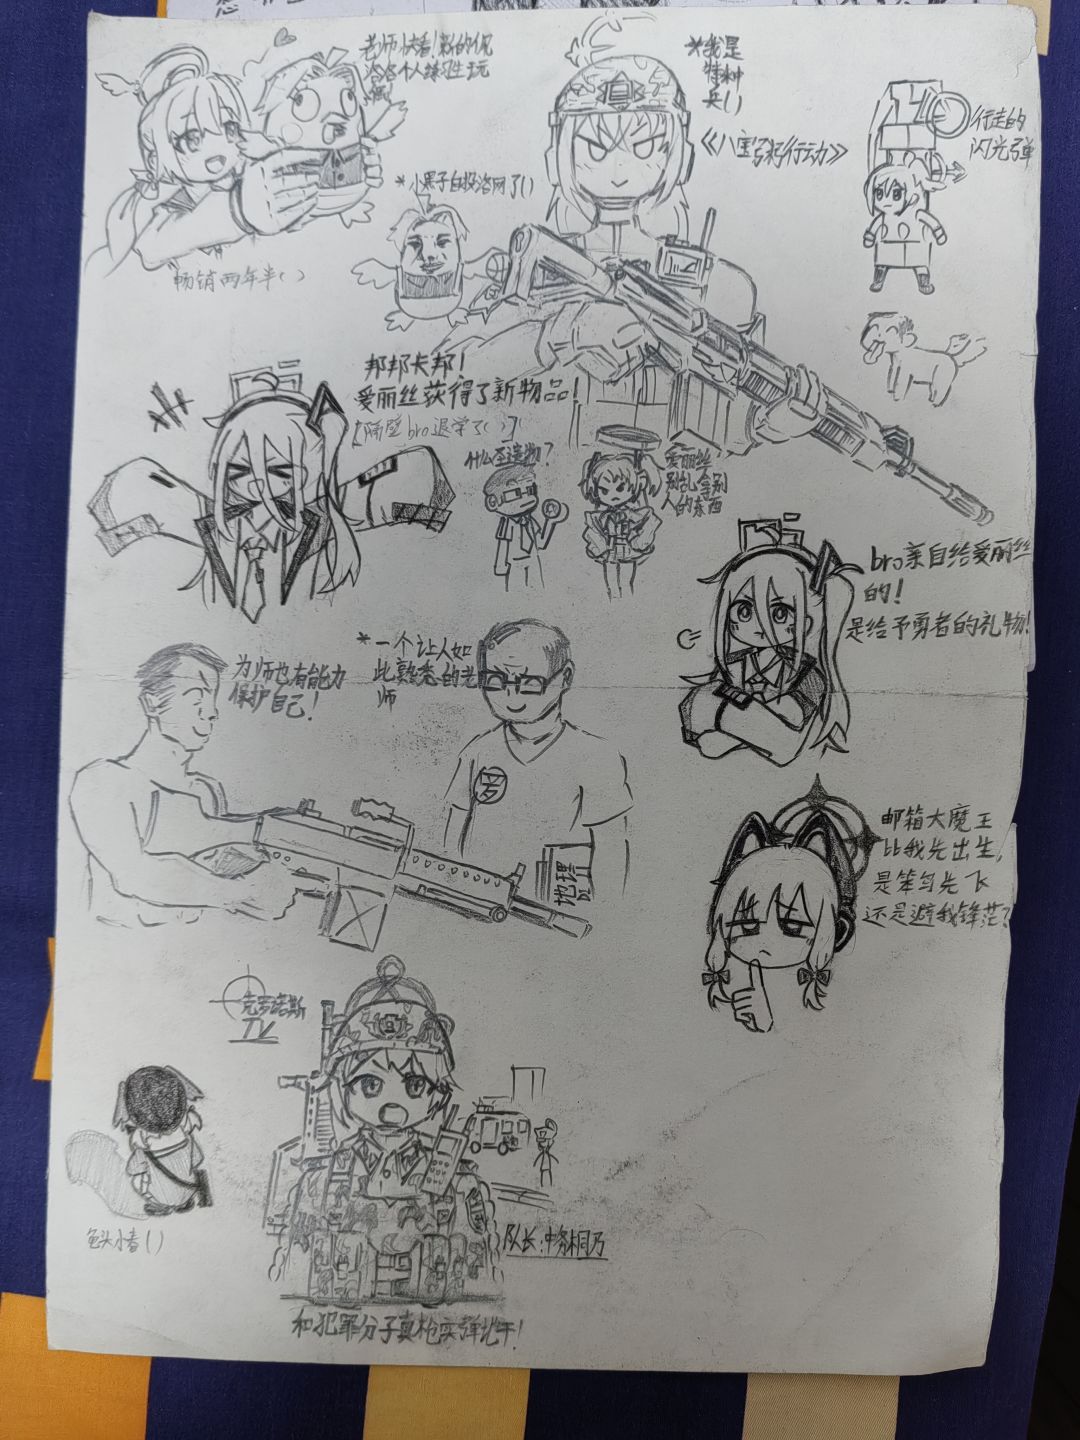 老师快看!新的佩
洛洛个人练习生玩
偶!
*我是
特种
兵()
《八宝粥行动》
行走的
闪光弹
*小黑子自投洛网了()
畅销两年半()
邦邦卡邦!
爱丽丝获得了新物品!
【隔壁bro退学了()】
什么至造物?
爱丽丝
别乱拿别
人的东西
bro亲自给爱丽丝
的!
是给予勇者的礼物!
为师也有能力
保护自己!
*一个让人如
此熟悉的老
师
罗
地理
邮箱大魔王
比我先出生,
是笨鸟先飞
还是避我锋芒?
克罗诺斯
TV
龟头小春()
队长:中务桐乃
和犯罪分子真枪实弹地干!